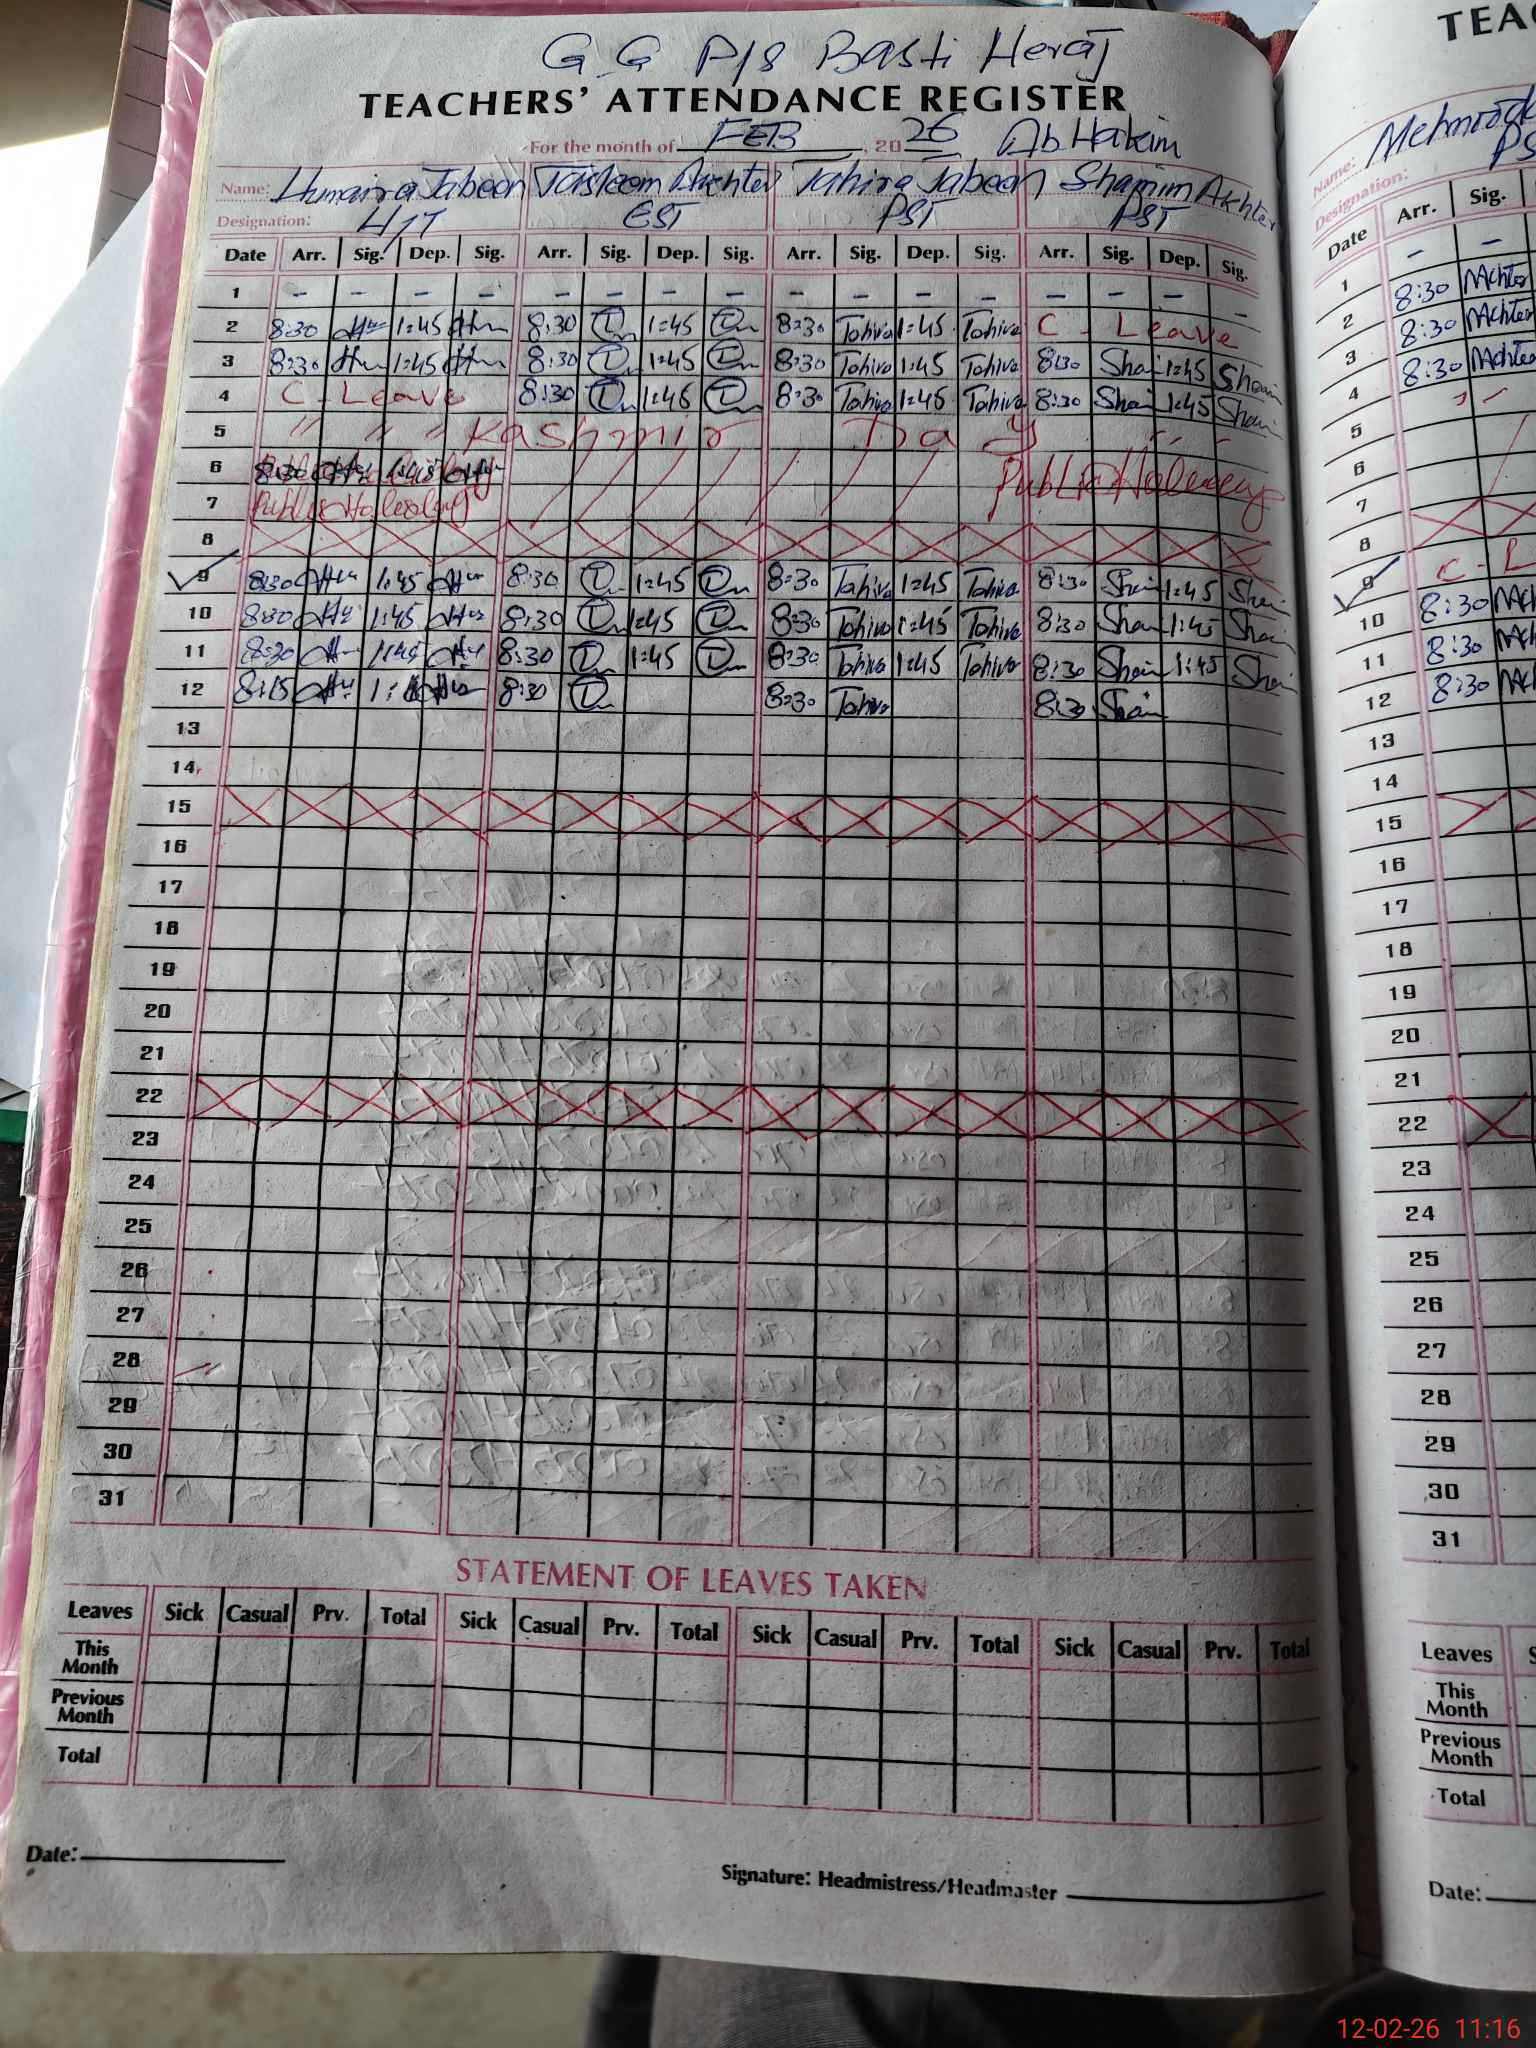 G.G P/S Basti Heraj
TEACHERS' ATTENDANCE REGISTER
For the month of FEB, 2026 Ab Hakim
Name: Humaira Jabeen Tasleem Akhter Tahira Jabeen Shamim Akhter
Designation: EST PST PST
Date Arr. Sig. Dep. Sig. Arr. Sig. Dep. Sig. Arr. Sig. Dep. Sig. Arr. Sig. Dep. Sig.
1 - - - - - - - - - - - - - - - -
2 8:30 1:45 8:30 1:45 8:30 Tahira 1:45 Tahira C - Leave
3 8:30 1:45 8:30 1:45 8:30 Tahira 1:45 Tahira 8:30 Sham 1:45 Sham
4 C - Leave 8:30 1:45 8:30 Tahira 1:45 Tahira 8:30 Sham 1:45 Sham
5 " " " Kashmir Day
6 8:30 1:45 Public Holiday
7 Public Holiday
8
9 8:30 1:45 8:30 1:45 8:30 Tahira 1:45 Tahira 8:30 Sham 1:45 Sham
10 8:30 1:45 8:30 1:45 8:30 Tahira 1:45 Tahira 8:30 Sham 1:45 Sham
11 8:30 1:45 8:30 1:45 8:30 Tahira 1:45 Tahira 8:30 Sham 1:45 Sham
12 8:15 8:30 8:30 Tahira 8:30 Sham
13
14
15
16
17
18
19
20
21
22
23
24
25
26
27
28
29
30
31
STATEMENT OF LEAVES TAKEN
Leaves Sick Casual Prv. Total Sick Casual Prv. Total Sick Casual Prv. Total Sick Casual Prv. Total
This Month
Previous Month
Total
Date:
Signature: Headmistress/Headmaster
Name:
Designation:
Date Arr. Sig.
1 - -
2 8:30
3 8:30
4 8:30
5
6
7
8
9 C - L
10 8:30
11 8:30
12 8:30
13
14
15
16
17
18
19
20
21
22
23
24
25
26
27
28
29
30
31
Leaves
This Month
Previous Month
Total
Date:
12-02-26 11:16